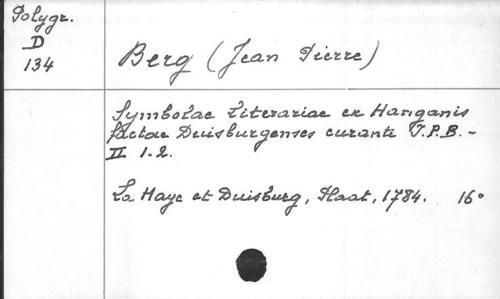 Polygr.
D
134
Berg (Jean Pierre)
Symbolae Literariae ex Hanganis
factae Duisburgenses curante J.P.B. -
II 1-2.
La Haye et Duisburg, Plaat, 1784. 16°